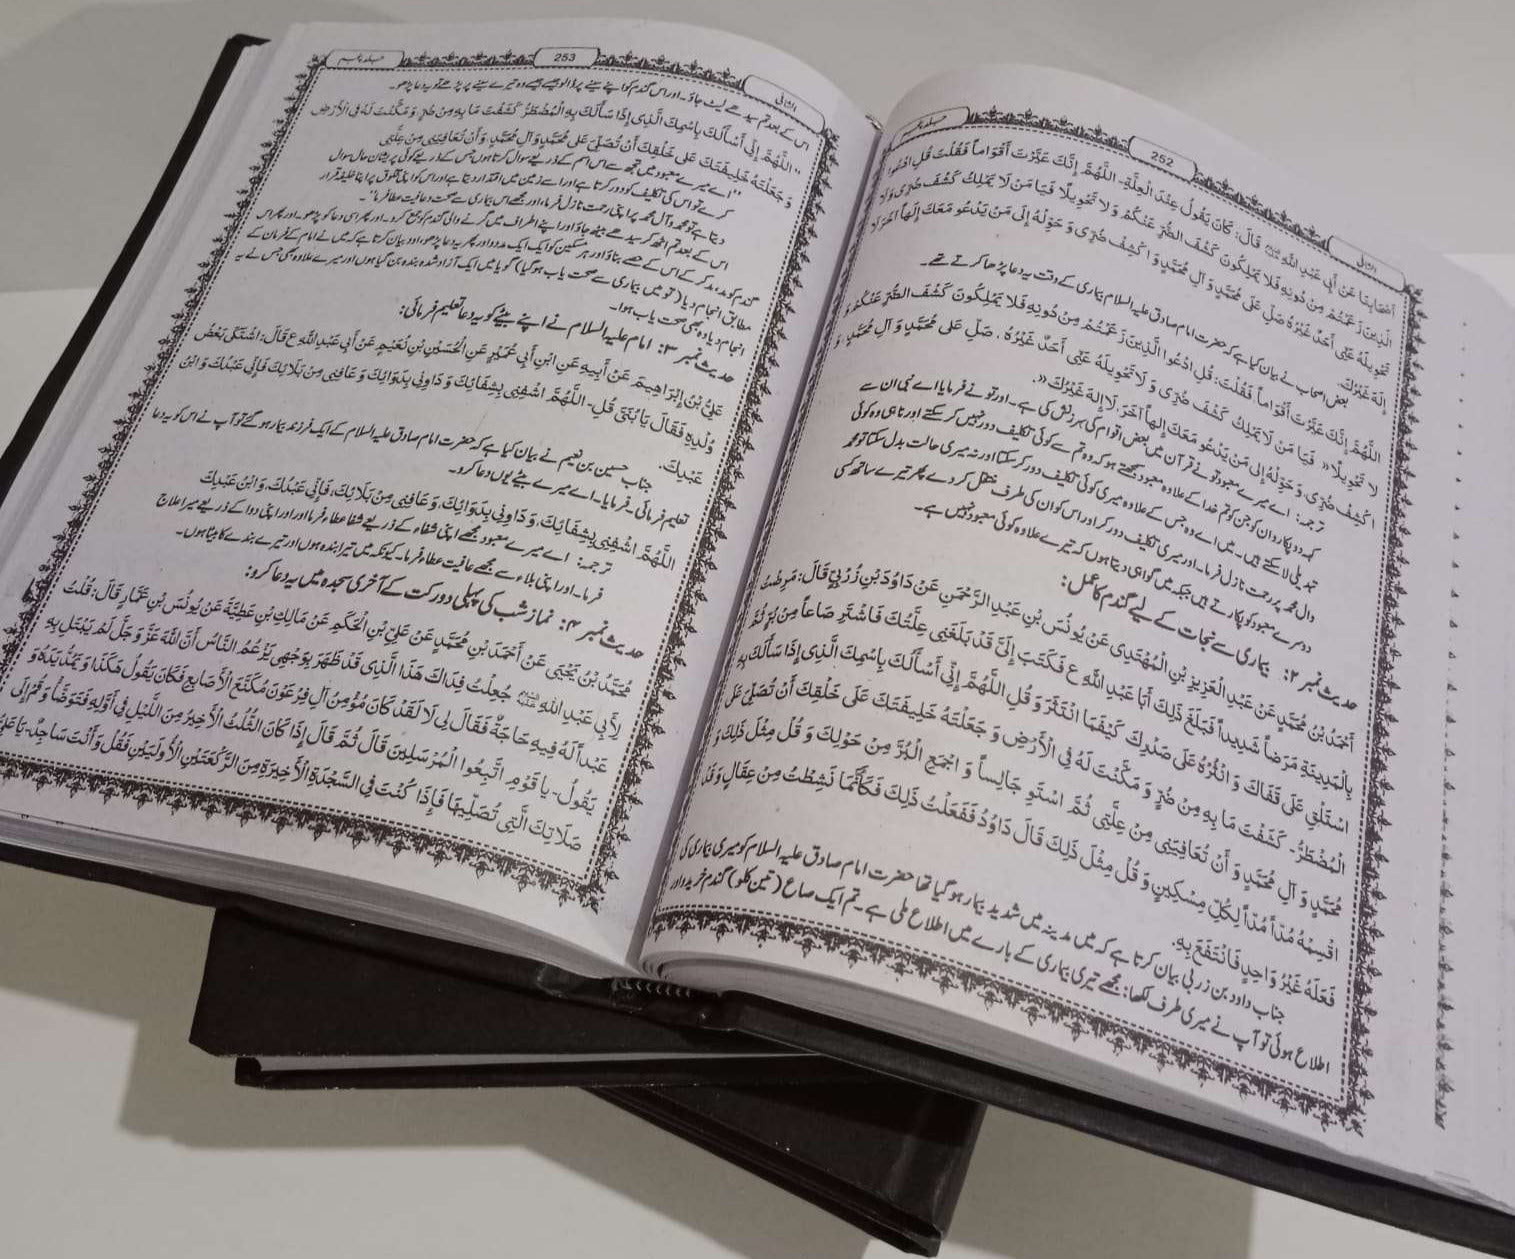 الشافی
252
جلد پنجم
أَصْحَابِنَا عَنْ أَبِي عَبْدِ اللّٰهِ عَلَيْهِ السَّلَام قَالَ: كَانَ يَقُولُ عِنْدَ الْعِلَّةِ- اللّٰهُمَّ إِنَّكَ عَيَّرْتَ أَقْوَاماً فَقُلْتَ قُلِ ادْعُوا
الَّذِينَ زَعَمْتُمْ مِنْ دُونِهِ فَلَا يَمْلِكُونَ كَشْفَ الضُّرِّ عَنْكُمْ وَ لَا تَحْوِيلًا فَيَا مَنْ لَا يَمْلِكُ كَشْفَ ضُرِّي وَ لَا
تَحْوِيلَهُ عَنِّي أَحَدٌ غَيْرُهُ صَلِّ عَلَى مُحَمَّدٍ وَ آلِ مُحَمَّدٍ وَ اكْشِفْ ضُرِّي وَ حَوِّلْهُ إِلَى مَنْ يَدْعُو مَعَكَ إِلٰهاً آخَرَ لَا
إِلٰهَ غَيْرُكَ.
بعض اصحاب نے بیان کیا ہے کہ حضرت امام صادق علیہ السلام بیماری کے وقت یہ دعا پڑھا کرتے تھے۔
اللّٰهُمَّ إِنَّكَ عَيَّرْتَ أَقْوَاماً فَقُلْتَ: قُلِ ادْعُوا الَّذِينَ زَعَمْتُمْ مِنْ دُونِهِ فَلَا يَمْلِكُونَ كَشْفَ الضُّرِّ عَنْكُمْ وَ
لَا تَحْوِيلًا« فَيَا مَنْ لَا يَمْلِكُ كَشْفَ ضُرِّي وَ لَا تَحْوِيلَهُ عَنِّي أَحَدٌ غَيْرُهُ، صَلِّ عَلَى مُحَمَّدٍ وَ آلِ مُحَمَّدٍ وَ
اكْشِفْ ضُرِّي وَ حَوِّلْهُ إِلَى مَنْ يَدْعُو مَعَكَ إِلٰهاً آخَرَ، لَا إِلٰهَ غَيْرُكَ«.
ترجمہ: اے میرے معبود تو نے قرآن میں بعض اقوام کی سرزنش کی ہے۔ اور تو نے فرمایا اے نبی ان سے
کہہ دو پکارو ان کو جن کو تم خدا کے علاوہ معبود سمجھتے ہو کہ وہ تم سے کوئی تکلیف دور نہیں کر سکتے اور نا ہی وہ کوئی
تبدیلی لا سکتے ہیں۔ میں اے وہ جس کے علاوہ میری کوئی تکلیف دور کر سکتا اور نہ میری حالت بدل سکتا تو محمد
وآل محمد پر رحمت نازل فرما۔ اور میری تکلیف دور کر اور اس کو ان کی طرف منتقل کر دے پھر تیرے ساتھ کسی
دوسرے معبود کو پکارتے ہیں جبکہ میں گواہی دیتا ہوں کہ تیرے علاوہ کوئی معبود نہیں ہے۔
حدیث نمبر ۲: بیماری سے نجات کے لیے گندم کا عمل:
أَحْمَدُ بْنُ مُحَمَّدٍ عَنْ عَبْدِ الْعَزِيزِ بْنِ الْمُهْتَدِي عَنْ يُونُسَ بْنِ عَبْدِ الرَّحْمٰنِ عَنْ دَاوُدَ بْنِ زُرْبِيٍّ قَالَ: مَرِضْتُ
بِالْمَدِينَةِ مَرَضاً شَدِيداً فَبَلَغَ ذٰلِكَ أَبَا عَبْدِ اللّٰهِ ع فَكَتَبَ إِلَيَّ قَدْ بَلَغَنِي عِلَّتُكَ فَاشْتَرِ صَاعاً مِنْ بُرٍّ ثُمَّ
اسْتَلْقِ عَلَى قَفَاكَ وَ انْثُرْهُ عَلَى صَدْرِكَ كَيْفَمَا انْتَثَرَ وَ قُلِ اللّٰهُمَّ إِنِّي أَسْأَلُكَ بِاسْمِكَ الَّذِي إِذَا سَأَلَكَ بِهِ
الْمُضْطَرُّ- كَشَفْتَ مَا بِهِ مِنْ ضُرٍّ وَ مَكَّنْتَ لَهُ فِي الْأَرْضِ وَ جَعَلْتَهُ خَلِيفَتَكَ عَلَى خَلْقِكَ أَنْ تُصَلِّيَ عَلَى
مُحَمَّدٍ وَ آلِ مُحَمَّدٍ وَ أَنْ تُعَافِيَنِي مِنْ عِلَّتِي ثُمَّ اسْتَوِ جَالِساً وَ اجْمَعِ الْبُرَّ مِنْ حَوْلِكَ وَ قُلْ مِثْلَ ذٰلِكَ وَ
اقْسِمْهُ مُدّاً مُدّاً لِكُلِّ مِسْكِينٍ وَ قُلْ مِثْلَ ذٰلِكَ قَالَ دَاوُدُ فَفَعَلْتُ ذٰلِكَ فَكَأَنَّمَا نَشِطْتُ مِنْ عِقَالٍ وَ قَدْ
فَعَلَهُ غَيْرُ وَاحِدٍ فَانْتَفَعَ بِهِ.
جناب داود بن زربی بیان کرتا ہے کہ میں مدینہ میں شدید بیمار ہو گیا تھا حضرت امام صادق علیہ السلام کو میری بیماری کی
اطلاع ہوئی تو آپ نے میری طرف لکھا: مجھے تیری بیماری کے بارے میں اطلاع ملی ہے۔ تم ایک صاع (تین کلو) گندم خریدو اور
الشافی
253
جلد پنجم
اس کے بعد تم سیدھے لیٹ جاؤ۔ اور اس گندم کو اپنے سینے پر ڈالو جیسے جیسے وہ تیرے سینے پر پڑے تو یہ دعا پڑھو۔
"اللّٰهُمَّ إِنِّي أَسْأَلُكَ بِاسْمِكَ الَّذِي إِذَا سَأَلَكَ بِهِ الْمُضْطَرُّ كَشَفْتَ مَا بِهِ مِنْ ضُرٍّ وَ مَكَّنْتَ لَهُ فِي الْأَرْضِ
وَ جَعَلْتَهُ خَلِيفَتَكَ عَلَى خَلْقِكَ أَنْ تُصَلِّيَ عَلَى مُحَمَّدٍ وَ آلِ مُحَمَّدٍ وَ أَنْ تُعَافِيَنِي مِنْ عِلَّتِي
"اے میرے معبود میں تجھ سے اس اسم کے ذریعے سوال کرتا ہوں جس کے ذریعے کوئی پریشان حال سوال
کرے تو اس کی تکلیف کو دور کرتا ہے اور اسے زمین میں اقتدار دیتا ہے اور اس کو اپنی مخلوق پر اپنا خلیفہ قرار
دیتا ہے تو محمد وآل محمد پر اپنی رحمت نازل فرما، اور مجھے اس بیماری سے صحت و عافیت عطا فرما"۔
اس کے بعد تم اٹھ کر سیدھے بیٹھ جاؤ اور اپنے اطراف میں گرنے والی گندم کو جمع کرو۔ اور پھر اسی دعا کو پڑھو۔ اور پھر اس
گندم کو مد مد کر کے اس کے حصے بناؤ اور ہر مسکین کو ایک ایک مد دو اور پھر یہ دعا پڑھو، داود بیان کرتا ہے کہ میں نے امام کے فرمان کے
مطابق انجام دیا (تو میں بیماری سے صحت یاب ہو گیا) گویا میں ایک آزاد شدہ بندہ بن گیا ہوں اور میرے علاوہ بھی جس نے یہ
انجام دیا وہ بھی صحت یاب ہوا۔
حدیث نمبر ۳: امام علیہ السلام نے اپنے بیٹے کو یہ دعا تعلیم فرمائی:
عَلِيُّ بْنُ إِبْرَاهِيمَ عَنْ أَبِيهِ عَنِ ابْنِ أَبِي عُمَيْرٍ عَنِ الْحُسَيْنِ بْنِ نُعَيْمٍ عَنْ أَبِي عَبْدِ اللّٰهِ ع قَالَ: اشْتَكَى بَعْضُ
وُلْدِهِ فَقَالَ يَا بُنَيَّ قُلِ- اللّٰهُمَّ اشْفِنِي بِشِفَائِكَ وَ دَاوِنِي بِدَوَائِكَ وَ عَافِنِي مِنْ بَلَائِكَ فَإِنِّي عَبْدُكَ وَ ابْنُ
عَبْدِكَ.
جناب حسین بن نعیم نے بیان کیا ہے کہ حضرت امام صادق علیہ السلام کے ایک فرزند بیمار ہو گئے تو آپ نے اس کو یہ دعا
تعلیم فرمائی۔ فرمایا۔ اے میرے بیٹے یوں دعا کرو۔
اللّٰهُمَّ اشْفِنِي بِشِفَائِكَ، وَ دَاوِنِي بِدَوَائِكَ، وَ عَافِنِي مِنْ بَلَائِكَ، فَإِنِّي عَبْدُكَ، وَ ابْنُ عَبْدِكَ
ترجمہ: اے میرے معبود مجھے اپنی شفاء کے ذریعے شفا عطاء فرما اور اور اپنی دوا کے ذریعے میرا علاج
فرما۔ اور اپنی بلاء سے مجھے عافیت عطا فرما۔ کیونکہ میں تیرا بندہ ہوں اور تیرے بندے کا بیٹا ہوں۔
حدیث نمبر ۴: نماز شب کی پہلی دو رکعت کے آخری سجدہ میں یہ دعا کرو:
مُحَمَّدُ بْنُ يَحْيَى عَنْ أَحْمَدَ بْنِ مُحَمَّدٍ عَنْ عَلِيِّ بْنِ الْحَكَمِ عَنْ مَالِكِ بْنِ عَطِيَّةَ عَنْ يُونُسَ بْنِ عَمَّارٍ قَالَ: قُلْتُ
لِأَبِي عَبْدِ اللّٰهِ عَلَيْهِ السَّلَام جُعِلْتُ فِدَاكَ هٰذَا الَّذِي قَدْ ظَهَرَ بِوَجْهِي يَزْعُمُ النَّاسُ أَنَّ اللّٰهَ عَزَّ وَ جَلَّ لَمْ يَبْتَلِ بِهِ
عَبْداً لَهُ فِيهِ حَاجَةٌ فَقَالَ لِي لَا لَقَدْ كَانَ مُؤْمِنُ آلِ فِرْعَوْنَ مُكَنَّعَ الْأَصَابِعِ فَكَانَ يَقُولُ هٰكَذَا وَ يَمُدُّ يَدَهُ وَ
يَقُولُ- يَا قَوْمِ اتَّبِعُوا الْمُرْسَلِينَ قَالَ ثُمَّ قَالَ إِذَا كَانَ الثُّلُثُ الْأَخِيرُ مِنَ اللَّيْلِ فِي أَوَّلِهِ فَتَوَضَّأْ وَ قُمْ إِلَى
صَلَاتِكَ الَّتِي تُصَلِّيهَا فَإِذَا كُنْتَ فِي السَّجْدَةِ الْأَخِيرَةِ مِنَ الرَّكْعَتَيْنِ الْأُولَيَيْنِ فَقُلْ وَ أَنْتَ سَاجِدٌ- يَا عَلِيُّ